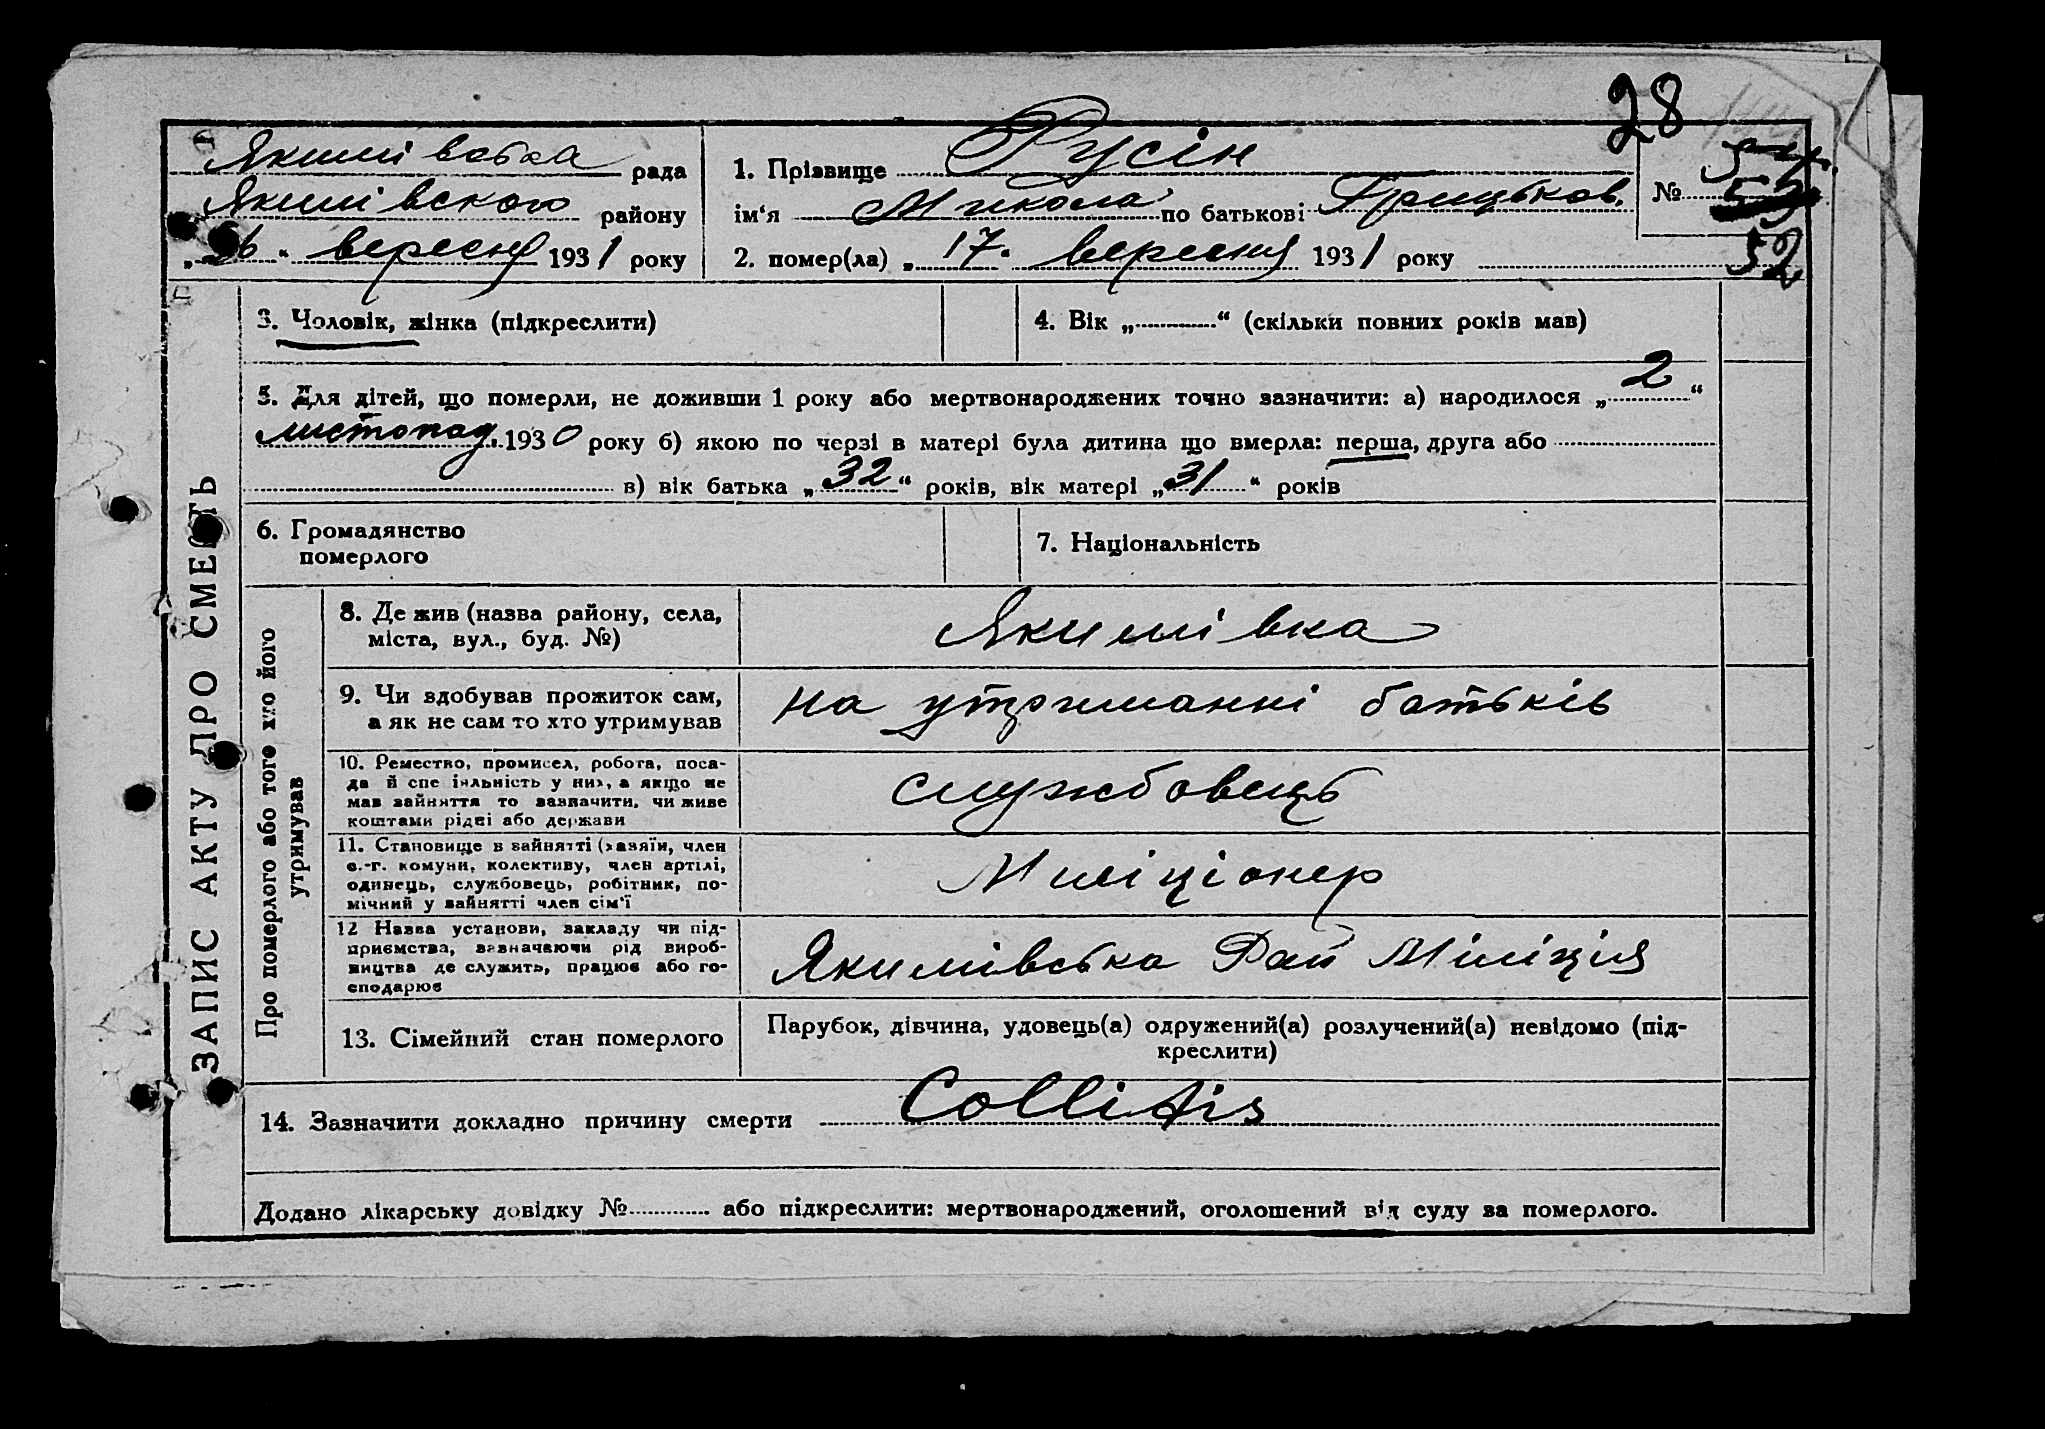 28
Якимівська рада
Якимівского району
„ 26 “ вересня 1931 року
1. Прізвище Русін
ім‘я Микола по батькові Грицьков.
№ 54. 53
52
2. помер(ла) „ 17 “ вересня 1931 року
ЗАПИС АКТУ ПРО СМЕРТЬ
3. Чоловік, жінка (підкреслити)
4. Вік „ “ (скільки повних років мав)
5. Для дітей, що померли, не доживши 1 року або мертвонароджених точно зазначити: а) народилося „ 2 “
листопад. 1930 року б) якою по черзі в матері була дитина що вмерла: перша, друга або
в) вік батька „ 32 “ років, вік матері „ 31 “ років
6. Громадянство
померлого
7. Національність
Про померлого або того хто його
утримував
8. Де жив (назва району, села,
міста, вул., буд. №)
Якимівка
9. Чи здобував прожиток сам,
а як не сам то хто утримував
на утриманні батьків
10. Ремество, промисел, робота, поса-
да й спе іяльність у них, а якщо не
мав зайняття то зазначити, чи живе
коштами рідні або держави
службовець
11. Становище в зайнятті (хазяїн, член
с.-г. комуни, колективу, член артілі,
одинець, службовець, робітник, по-
мічний у зайнятті член сім‘ї
Миліціонер
12 Назва установи, закладу чи під-
приємства, зазначаючи рід вироб-
ництва де служить, працює або го-
сподарює
Якимівська Рай Міліція
13. Сімейний стан померлого
Парубок, дівчина, удовець(а) одружений(а) розлучений(а) невідомо (під-
креслити)
14. Зазначити докладно причину смерти Collitis
Додано лікарську довідку № або підкреслити: мертвонароджений, оголошений від суду за померлого.